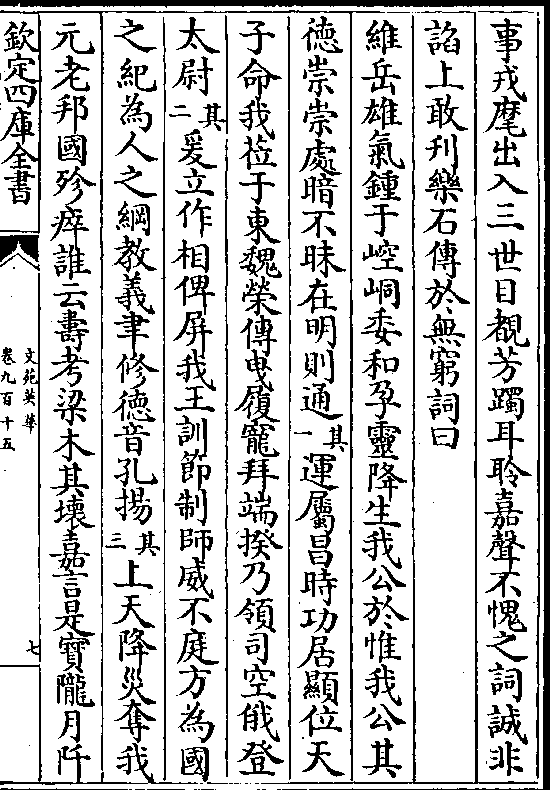 事戎麾出入三世目覩芳躅耳聆嘉聲不愧之詞誠非
諂上敢刋樂石傳於無窮詞曰
維岳雄氣鍾于崆峒委和孕靈降生我公於惟我公其
德崇崇處暗不昧在明則通其一運屬昌時功居顯位天
子命我莅于東魏榮傳曳履寵拜端揆乃領司空俄登
太尉其二爰立作相俾屏我王訓節制師威不庭方為國
之紀為人之綱教義聿修德音孔揚其三上天降災奪我
元老邦國殄瘁誰云壽考梁木其壞嘉言是寳隴月阡
欽定四庫全書
文苑英華
卷九百十五
七